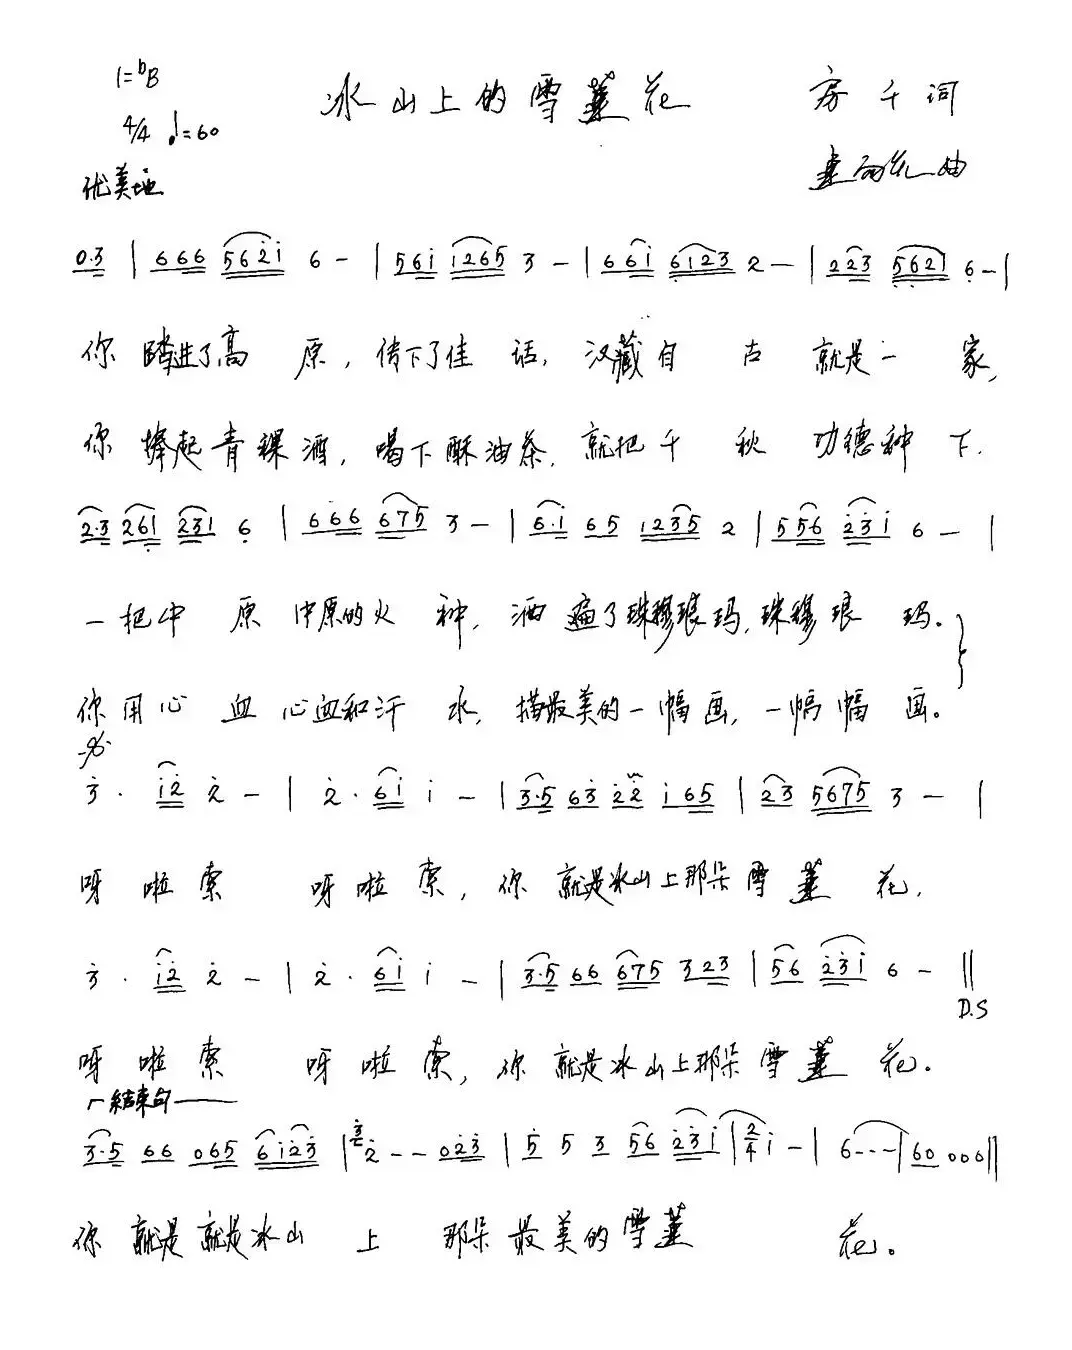 1=bB
冰山上的雪莲花
房千词
4/4 ♩=60
曲
优美地
0·3 | 666 5621 6 - | 561 1265 3 - | 661 6123 2 - | 223 5621 6 - |
你踏进了高原，传下了佳话，汉藏自古就是一家，
你捧起青稞酒，喝下酥油茶，就把千秋功德种下。
2·3 261 231 6 | 666 675 3 - | 6·1 65 1235 2 | 556 231 6 - |
一把中原中原的火种，洒遍了珠穆琅玛，珠穆琅玛。
你用心血心血和汗水，描最美的一幅画，一幅幅画。
3· 12 2 - | 2· 61 1 - | 3·5 63 22 165 | 23 5675 3 - |
呀啦索 呀啦索，你就是冰山上那朵雪莲花，
3· 12 2 - | 2· 61 1 - | 3·5 66 675 323 | 56 231 6 - ‖
D.S
呀啦索 呀啦索，你就是冰山上那朵雪莲花。
结束句
3·5 66 065 6123 | 3 2 - - 023 | 5 5 3 56 231 | 2/4 1 - | 6 - - - | 60 000 ‖
你就是就是冰山上那朵最美的雪莲花。